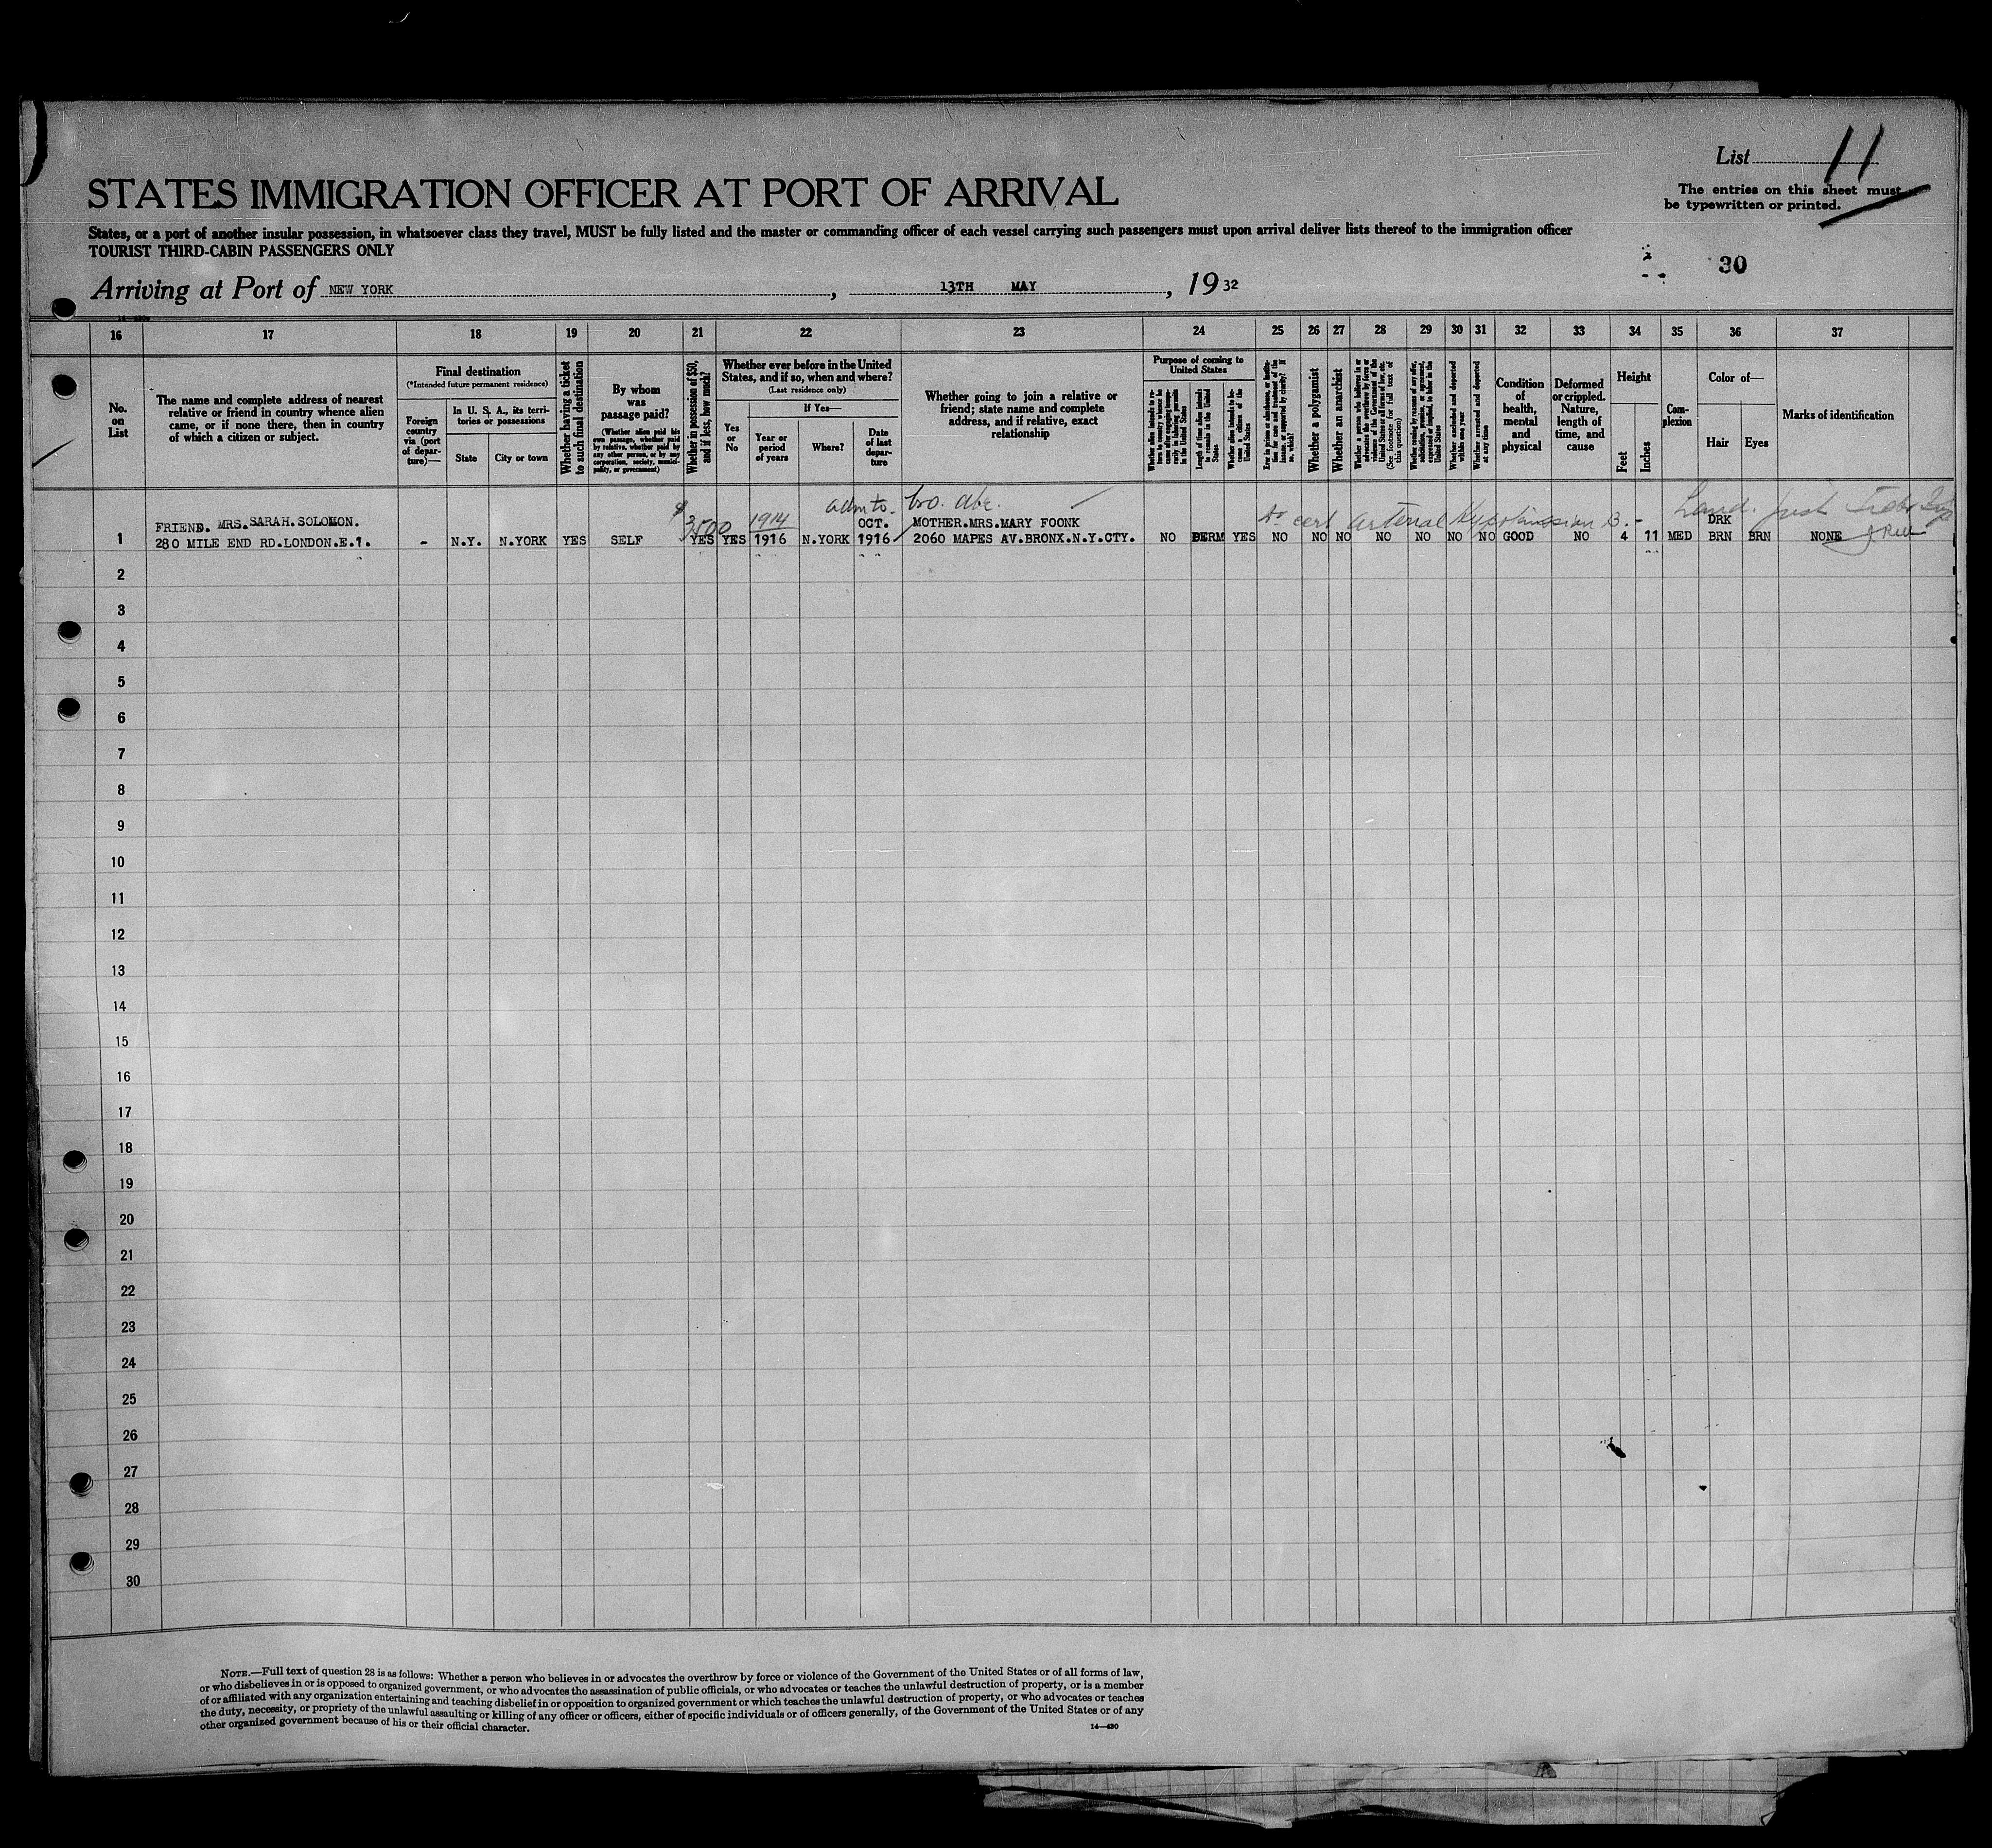 List 11
STATES IMMIGRATION OFFICER AT PORT OF ARRIVAL
The entries on this sheet must
be typewritten or printed.
States, or a port of another insular possession, in whatsoever class they travel, MUST be fully listed and the master or commanding officer of each vessel carrying such passengers must upon arrival deliver lists thereof to the immigration officer
TOURIST THIRD-CABIN PASSENGERS ONLY
30
Arriving at Port of NEW YORK, 13TH MAY, 1932
16 17 18 19 20 21 22 23 24 25 26 27 28 29 30 31 32 33 34 35 36 37
No. on List
The name and complete address of nearest
relative or friend in country whence alien
came, or if none there, then in country
of which a citizen or subject.
Final destination
(*Intended future permanent residence)
Foreign country via (port of departure)—
In U. S. A., its territories or possessions
State
City or town
Whether having a ticket to such final destination
By whom was passage paid?
(Whether alien paid his own passage, whether paid by relative, whether paid by any other person, or by any corporation, society, municipality, or government)
Whether in possession of $50, and if less, how much?
Whether ever before in the United
States, and if so, when and where?
(Last residence only)
Yes or No
If Yes—
Year or period of years
Where?
Date of last departure
Whether going to join a relative or
friend; state name and complete
address, and if relative, exact
relationship
Purpose of coming to United States
Length of time alien intends to remain in the United States
Whether alien intends to become a citizen of the United States
Whether a polygamist
Whether an anarchist
(See footnote for full text of this question)
Whether arrested and deported at any time
Condition of health, mental and physical
Deformed or crippled. Nature, length of time, and cause
Height
Feet
Inches
Complexion
Color of—
Hair
Eyes
Marks of identification
adm to bro. abe.
$3500 1914
Dr cert arterial hypertension B.
Land.
FRIEND. MRS. SARAH. SOLOMON. OCT. MOTHER.MRS.MARY FOONK DRK
1 280 MILE END RD.LONDON.E.1. - N.Y. N.YORK YES SELF YES YES 1916 N.YORK 1916 2060 MAPES AV.BRONX.N.Y.CTY. NO PERM YES NO NO NO NO NO NO NO GOOD NO 4 11 MED BRN BRN NONE
2
3
4
5
6
7
8
9
10
11
12
13
14
15
16
17
18
19
20
21
22
23
24
25
26
27
28
29
30
NOTE.—Full text of question 28 is as follows: Whether a person who believes in or advocates the overthrow by force or violence of the Government of the United States or of all forms of law,
or who disbelieves in or is opposed to organized government, or who advocates the assassination of public officials, or who advocates or teaches the unlawful destruction of property, or is a member
of or affiliated with any organization entertaining and teaching disbelief in or opposition to organized government or which teaches the unlawful destruction of property, or who advocates or teaches
the duty, necessity, or propriety of the unlawful assaulting or killing of any officer or officers, either of specific individuals or of officers generally, of the Government of the United States or of any
other organized government because of his or their official character.
14—430